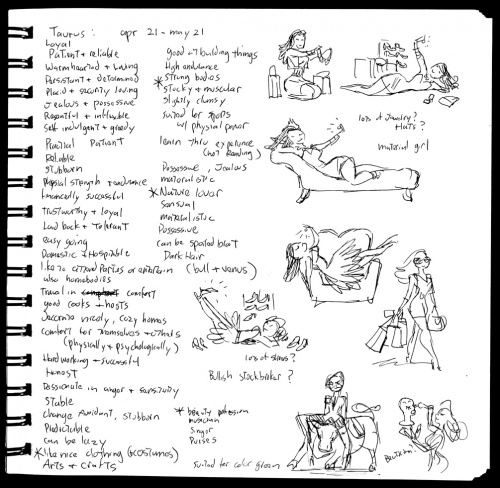 Taurus : apr 21 - may 21
Loyal
Patient + reliable
Warmhearted + Loving
Persistant + determined
Placid + security loving
Jealous + possessive
Resentful + inflexible
Self indulgent + greedy
Practical Patient
Reliable
Stubborn
Physical strength + endurance
financially successful
trustworthy + loyal
Laid back + Tolerant
easy going
Domestic + Hospitable
like to attend Parties or entertain
also homebodies
Travel in comfort
good cooks + hosts
Decorate nicely, cozy homes
comfort for themselves + others
(physically + psychologically)
Hardworking + successful
Honest
Passionate in anger + sensitivity
Stable
change avoidant, stubborn
Predictable
can be lazy
* like nice clothing (costumes)
Arts + Crafts
good at building things
High endurance
* Strong bodies
stocky + muscular
slightly clumsy
suited for sports
w/ physical power
learn thru experience
(not reading)
Possessive, Jealous
materialistic
* Nature lover
Sensual
materialistic
Possessive
can be spoiled brat
Dark Hair
(bull + venus)
lots of shoes ?
Bullish Stockbroker ?
* beauty profession
musician
Singer
Purses
suited for color green
lots of Jewelry?
Hats?
material girl
Beautician